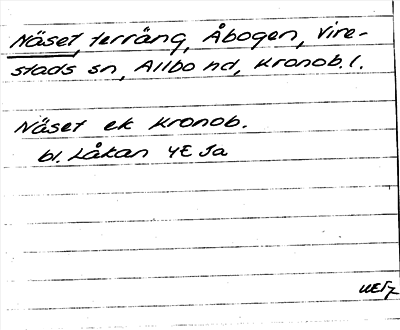 Näset, terräng, Åbogen, Vire-
stads sn, Allbo hd, Kronob. l.
Näset ek Kronob.
bl. Låkan 4E Ja